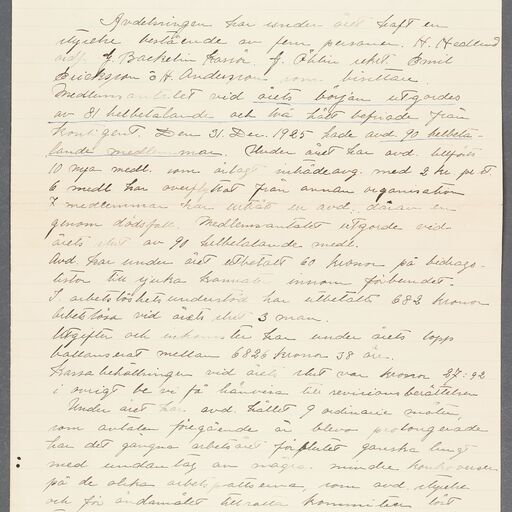 Avdelningen har under året haft en
styrelse bestående av fem personer. H. Hedlund
ordf. J. Backelin Kassör. J. Öhlin sekt. Emil
Ericksson o H. Andersson som bisittare.
Medlemsantalet vid årets början utgordes
av 81 helbetalande och två hält befriade från
kontigent. Den 31 Dec. 1925 hade avd. 90 helbeta-
lande medlemmar. Under året har avd. tillförts
10 nya medl. som erlagt inträdeavg. med 2 kr pr st.
6 medl har överflyttat från annan organisation
7 medlemmar har utgått ur avd. därav en
genom dödsfall. Medlemsantalet utgorde vid
årets slut av 90 helbetalande medl.
Avd. har under året utbetalt 60 kronor på bidrags-
listor till sjuka kamrater innom förbundet.
I arbetslöshetsunderstöd har utbetalts 682 kronor
arbetslösa vid årets slut 3 man.
Utgifter och inkomster har under årets lopp
ballanserat mellan 6826 kronor 38 öre.
Kassabehållningen vid årets slut var kronor 27:92
i övrigt be vi få hänvisa till revisionsberättelsen
Under året har avd. hållet 9 ordinarie möten,
som avtalen föregående år blevo prolongerade
har det gångna arbetsåret förflutet ganska lungt
med undantag av några mindre kontroverser
på de olika arbetsplatserna, som avd. styrelse
och för ändamålet tillsatta kommitteer löst